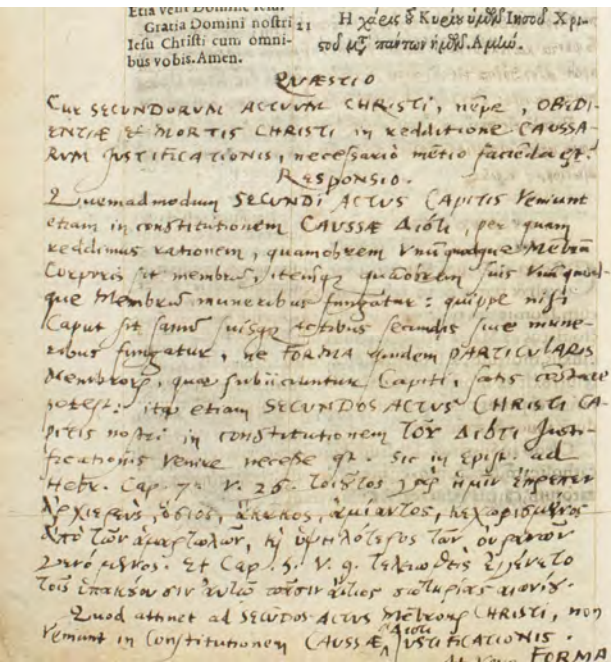 Etia veni Domine Iesu.
Gratia Domini nostri 21 Ἡ χάρις τοῦ Κυρίου ἡμῶν Ἰησοῦ Χρι-
Iesu Christi cum omni- στοῦ μετὰ πάντων ἡμῶν. Ἀμήν.
bus vobis. Amen.
QVÆSTIO
Cur SECUNDORVM ACTVVM CHRISTI, nẽpe, OBEDI-
ENTIÆ et MORTIS CHRISTI in redditione CAVSSA-
RVM JVSTIFICATIONIS, necessariò mẽtio faciẽda est?
RESPONSIO.
Quemadmodum SECUNDI ACTVS CAPITIS veniunt
etiam in constitutionem CAVSSÆ διότι, per quam
reddimus rationem, quamobrem vnũquodque Mẽbrũ
Corporis sit membrũ, itẽq quãobrem suis vnũquod-
que Membrũ muneribus fungatur: quippe nisi
Caput sit sanũ suisq actibus secundis sive mune-
ribus fungatur, ne FORMA quidem PARTICVLARIS
Membrorũ, quæ subiiciuntur Capiti, satis cõstare
potest: ita etiam SECVNDOS ACTVS CHRISTI CA-
PITIS nostri in constitutionem ΤΟΥ ΔΙΌΤΙ Justi-
ficationis venire necesse est. Sic in Epist. ad
Hebr. Cap. 7. V. 26. τοιοῦτος γὰρ ἡμῖν ἔπρεπεν
ἀρχιερεὺς, ὅσιος, ἄκακος, ἀμίαντος, κεχωρισμένος
ἀπὸ τῶν ἁμαρτωλῶν, καὶ ὑψηλότερος τῶν οὐρανῶν
γενόμενος. Et Cap. 5. V. 9. τελειωθεὶς ἐγένετο
τοῖς ὑπακούουσιν αὐτῷ πᾶσιν αἴτιος σωτηρίας αἰωνίου.
Quod attinet ad SECŨDOS ACTVS Mẽbrorũ CHRISTI, non
veniunt in Constitutionem CAVSSÆ διότι JVSTIFICATIONIS.
FORMA